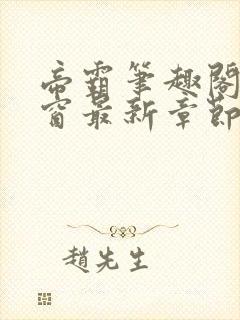 帝霸筆趣閣
窗最新章節
趙先生